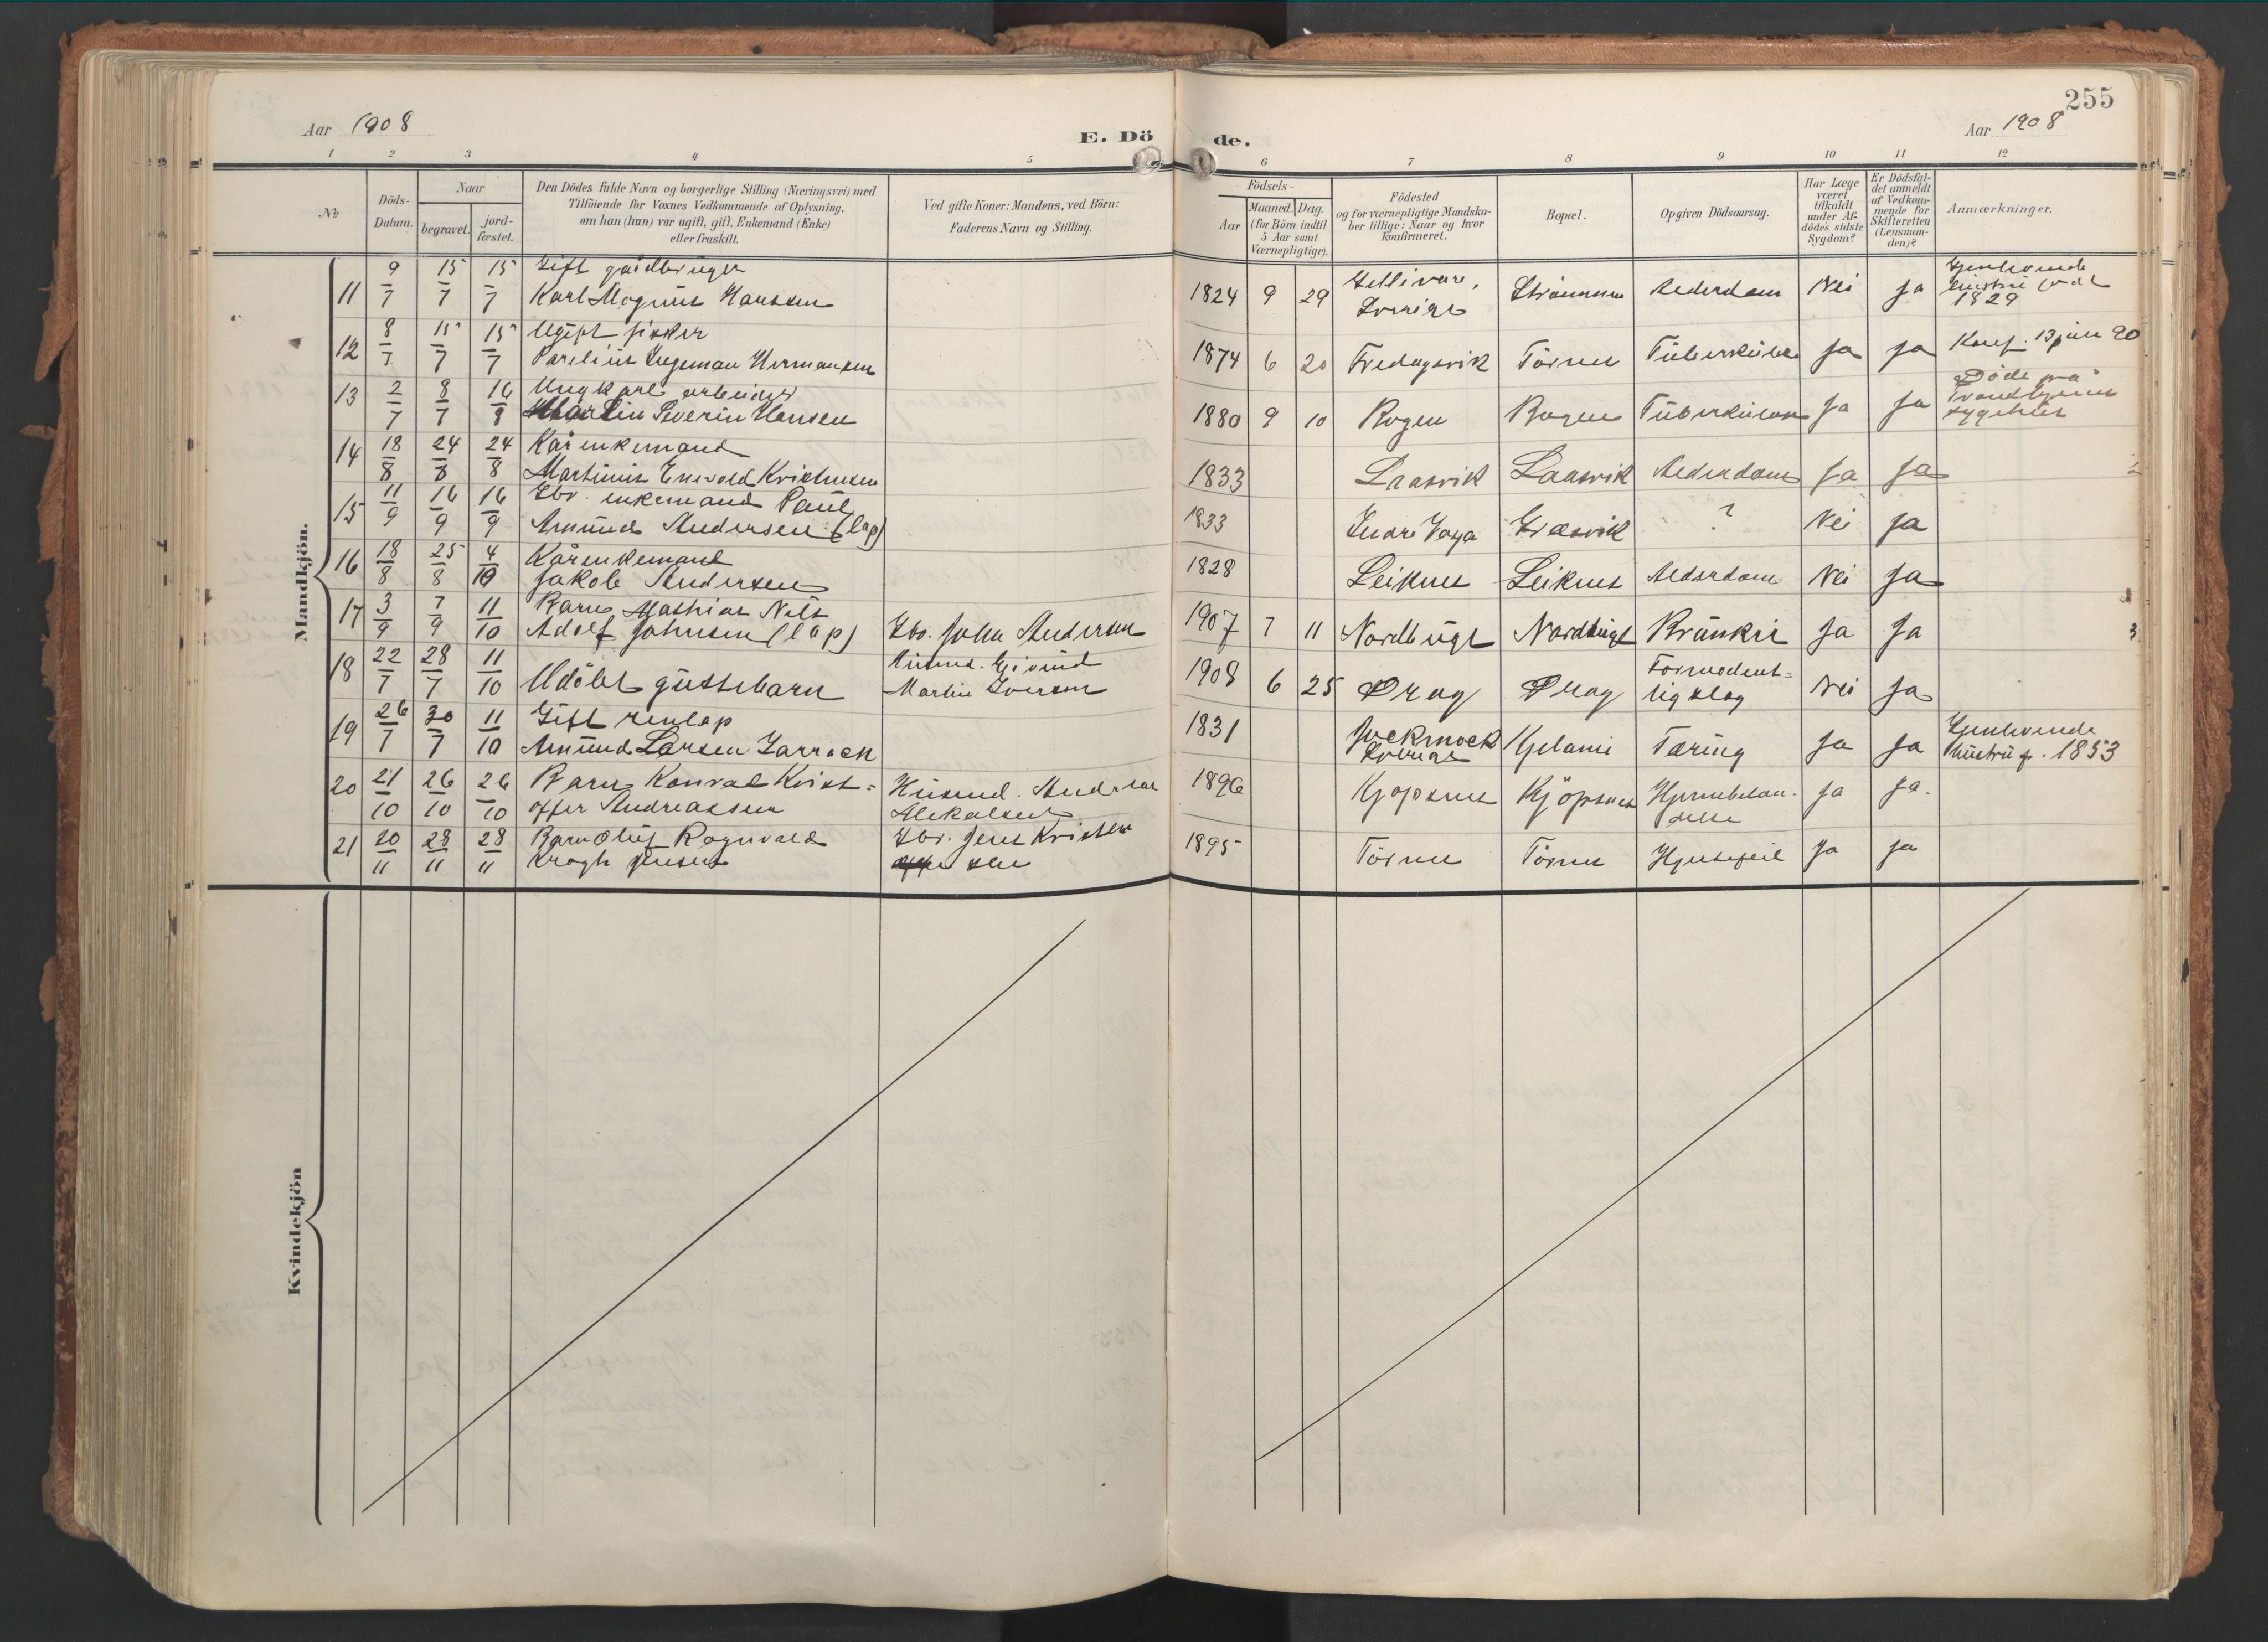 255
Aar 1908
E. Döde.
Aar 1908
1 2 3 4 5 6 7 8 9 10 11 12
№
Döds-
Datum.
Naar
begravet.
jord-
fæstet.
Den Dödes fulde Navn og borgerlige Stilling (Næringsvei) med
Tilföiende for Voxnes Vedkommende af Oplysning,
om han (hun) var ugift, gift, Enkemand (Enke)
eller fraskilt.
Ved gifte Koner: Mandens, ved Börn:
Faderens Navn og Stilling.
Födsels-
Aar
Maaned. Dag.
(for Börn indtil
5 Aar samt
Værnepligtige).
Födested
og for værnepligtige Mandska-
ber tillige: Naar og hvor
konfirmeret.
Bopæl.
Opgiven Dödsaarsag.
Har Læge
været
tilkaldt
under Af-
dödes sidste
Sygdom?
Er Dödsfal-
det anmeldt
af Vedkom-
mende for
Skifteretten
(Lensman-
den)?
Anmærkninger.
Mandkjön.
11 9/7 15/7 15/7 Gift gårdbruger
Karl Magnus Hanssen
1824 9 29 Gellivare,
Sverige
Strömmen Alderdom Nei Ja
Gjenlevende
hustru født
1829
12 8/7 15/7 15/7 Ugift fisker
Parelius Ingeman Hermansen
1874 6 20 Fredagsvik Tömn Tuberkulose Ja Ja Konf. 13 juli 90
13 2/7 8/7 16/8 Ungkarl arbeider
Martin Severin Hansen
1880 9 10 Rogen Rogen Tuberkulose Ja Ja
Döde på
Trondhjems
sygehus
14 18/8 24/8 24/8 Kårenkemand
Martinus Enevold Kristensen
1833 Laasvik Laasvik Alderdom Ja Ja
15 11/9 16/9 16/9 Gbr. enkemand Paul
Amund Andersen (lap)
1833 Indre Græsvik ? Nei Ja
16 18/8 25/8 4/10 Kårenkemand
Jakob Andersen
1828 Leiknes Leiknes Alderdom Nei Ja
17 3/9 7/9 11/10 Barn Mathias Nils
Adolf Johnsen (lap)
Gbr. John Andersen
1907 7 11 Nordbugt Nordbugt Brånkit Ja Ja
18 22/7 28/7 11/10 Udöbt guttebarn
Husmd. Eivind
Martin Iversen
1908 6 25 Drag Drag
Formodent=
lig slag
Nei Ja
19 26/7 30/7 11/10 Gift renlap
Amund Larsen Zarrock
1831 Jockmock
Sverige
Kjelami Tæring Ja Ja
Gjenlevende
hustru f. 1853
20 21/10 26/10 26/10 Barn Konrad Krist=
offer Andreassen
Husmd. Andreas
1896 Kjöpsnes Kjöpsnes Hjernebetæn-
delse
Ja Ja.
21 20/11 28/11 28/11 Barn Oluf Ragnvald
Krogh Jensen
Gbr. Jens Kristen
sen
1895 Tömn Tömn Hjertefeil Ja Ja
Kvindekjön